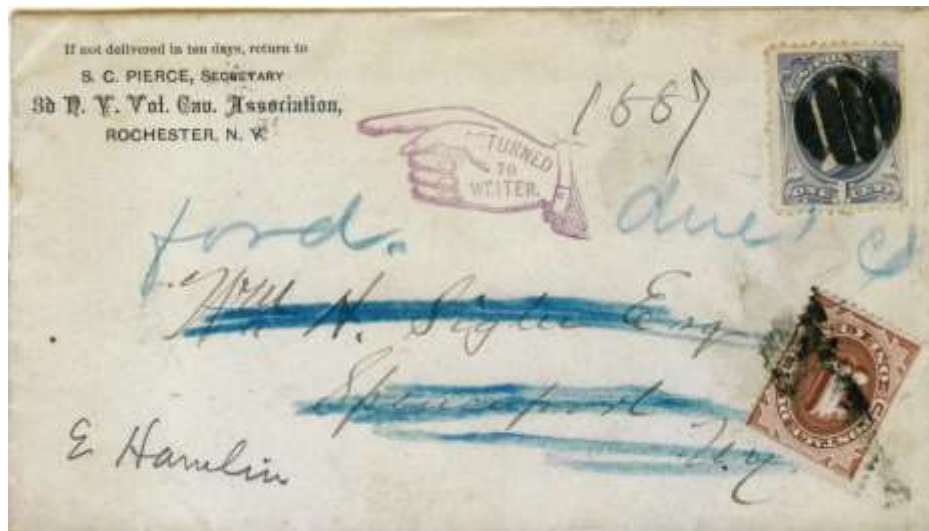 If not delivered in ten days, return to
S. C. PIERCE, SECRETARY
3d N. Y. Vol. Cav. Association,
ROCHESTER, N. Y.
TURNED
TO
WRITER.
1887
ford. due 1 c
Wm H. Sigler Esq
Spencerport
N.Y.
E Hamlin